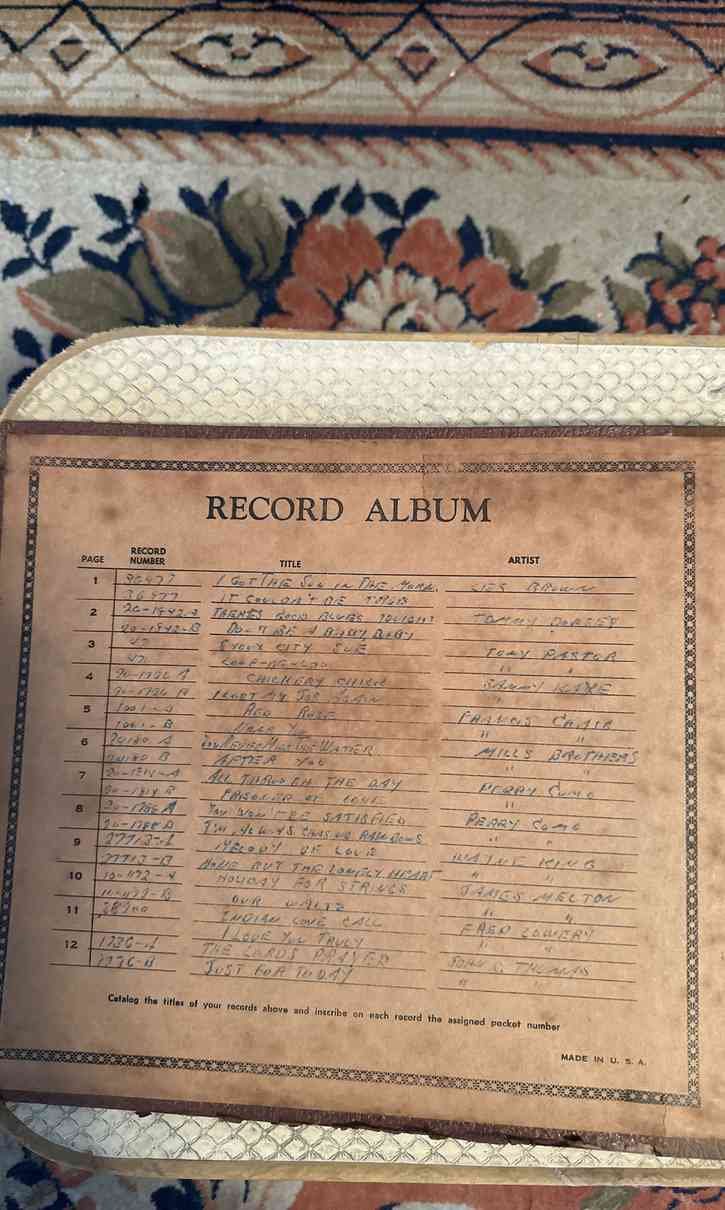 RECORD ALBUM
PAGE RECORD NUMBER TITLE ARTIST
1 36477 I GOT THE SUN IN THE MORN. LES BROWN
36477 IT COULDN'T BE TRUE
2 20-1842-A THERES GOOD BLUES TONIGHT TOMMY DORSEY
20-1842-B DON'T BE A BABY, BABY "
3 47 SIOUX CITY SUE TONY PASTOR
47 " "
4 20-1726 A CHICKERY CHICK SAMMY KAYE
20-1726 B I LOST MY JOB AGAIN " "
5 1001-A RED ROSE FRANCIS CRAIG
1001-B NEAR YOU " "
6 24180 A MISS THE WATER MILLS BROTHERS
24180 B AFTER YOU " "
7 ALL THROUGH THE DAY PERRY COMO
PRISONER OF LOVE "
8 20-1788 A YOU WON'T BE SATISFIED PERRY COMO
20-1788 I'M ALWAYS CHASING RAINBOWS " "
9 27713-A MELODY OF LOVE WAYNE KING
27713-B NONE BUT THE LONELY HEART " "
10 HOLIDAY FOR STRINGS JAMES MELTON
OUR WALTZ " "
11 INDIAN LOVE CALL FRED LOWERY
I LOVE YOU TRULY " "
12 1736-A THE LORDS PRAYER JOHN C. THOMAS
1736-B JUST FOR TODAY " "
Catalog the titles of your records above and inscribe on each record the assigned pocket number
MADE IN U. S. A.